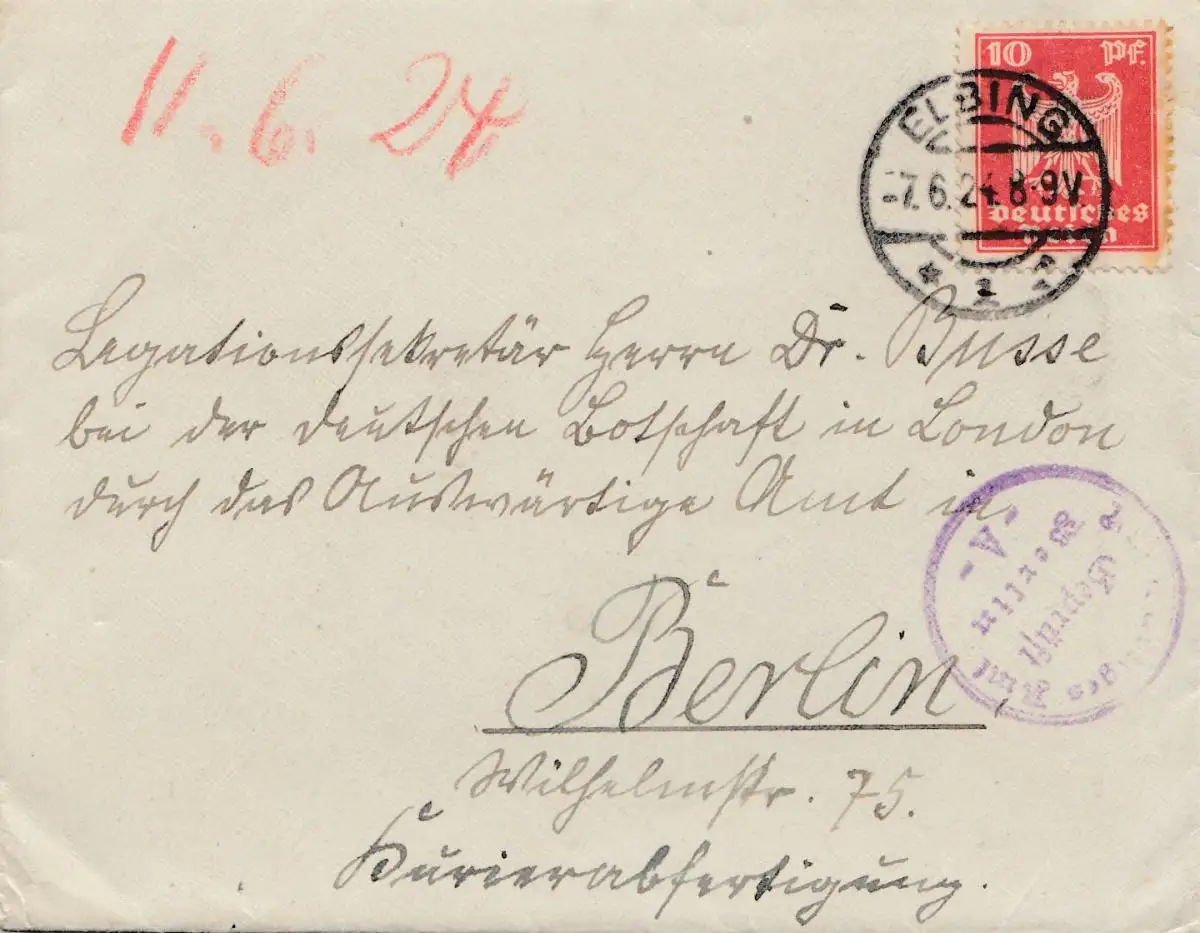 11. 6. 24
10 Pf.
Deutsches
Reich
ELBING
-7.6.24. 8-9V
* 1
Legationssekretär Herrn Dr. Busse
bei der deutschen Botschaft in London
durch das Auswärtige Amt in
Berlin,
Wilhelmstr. 75.
Kurierabfertigung.
Geprüft
Berlin
-A-
Amt